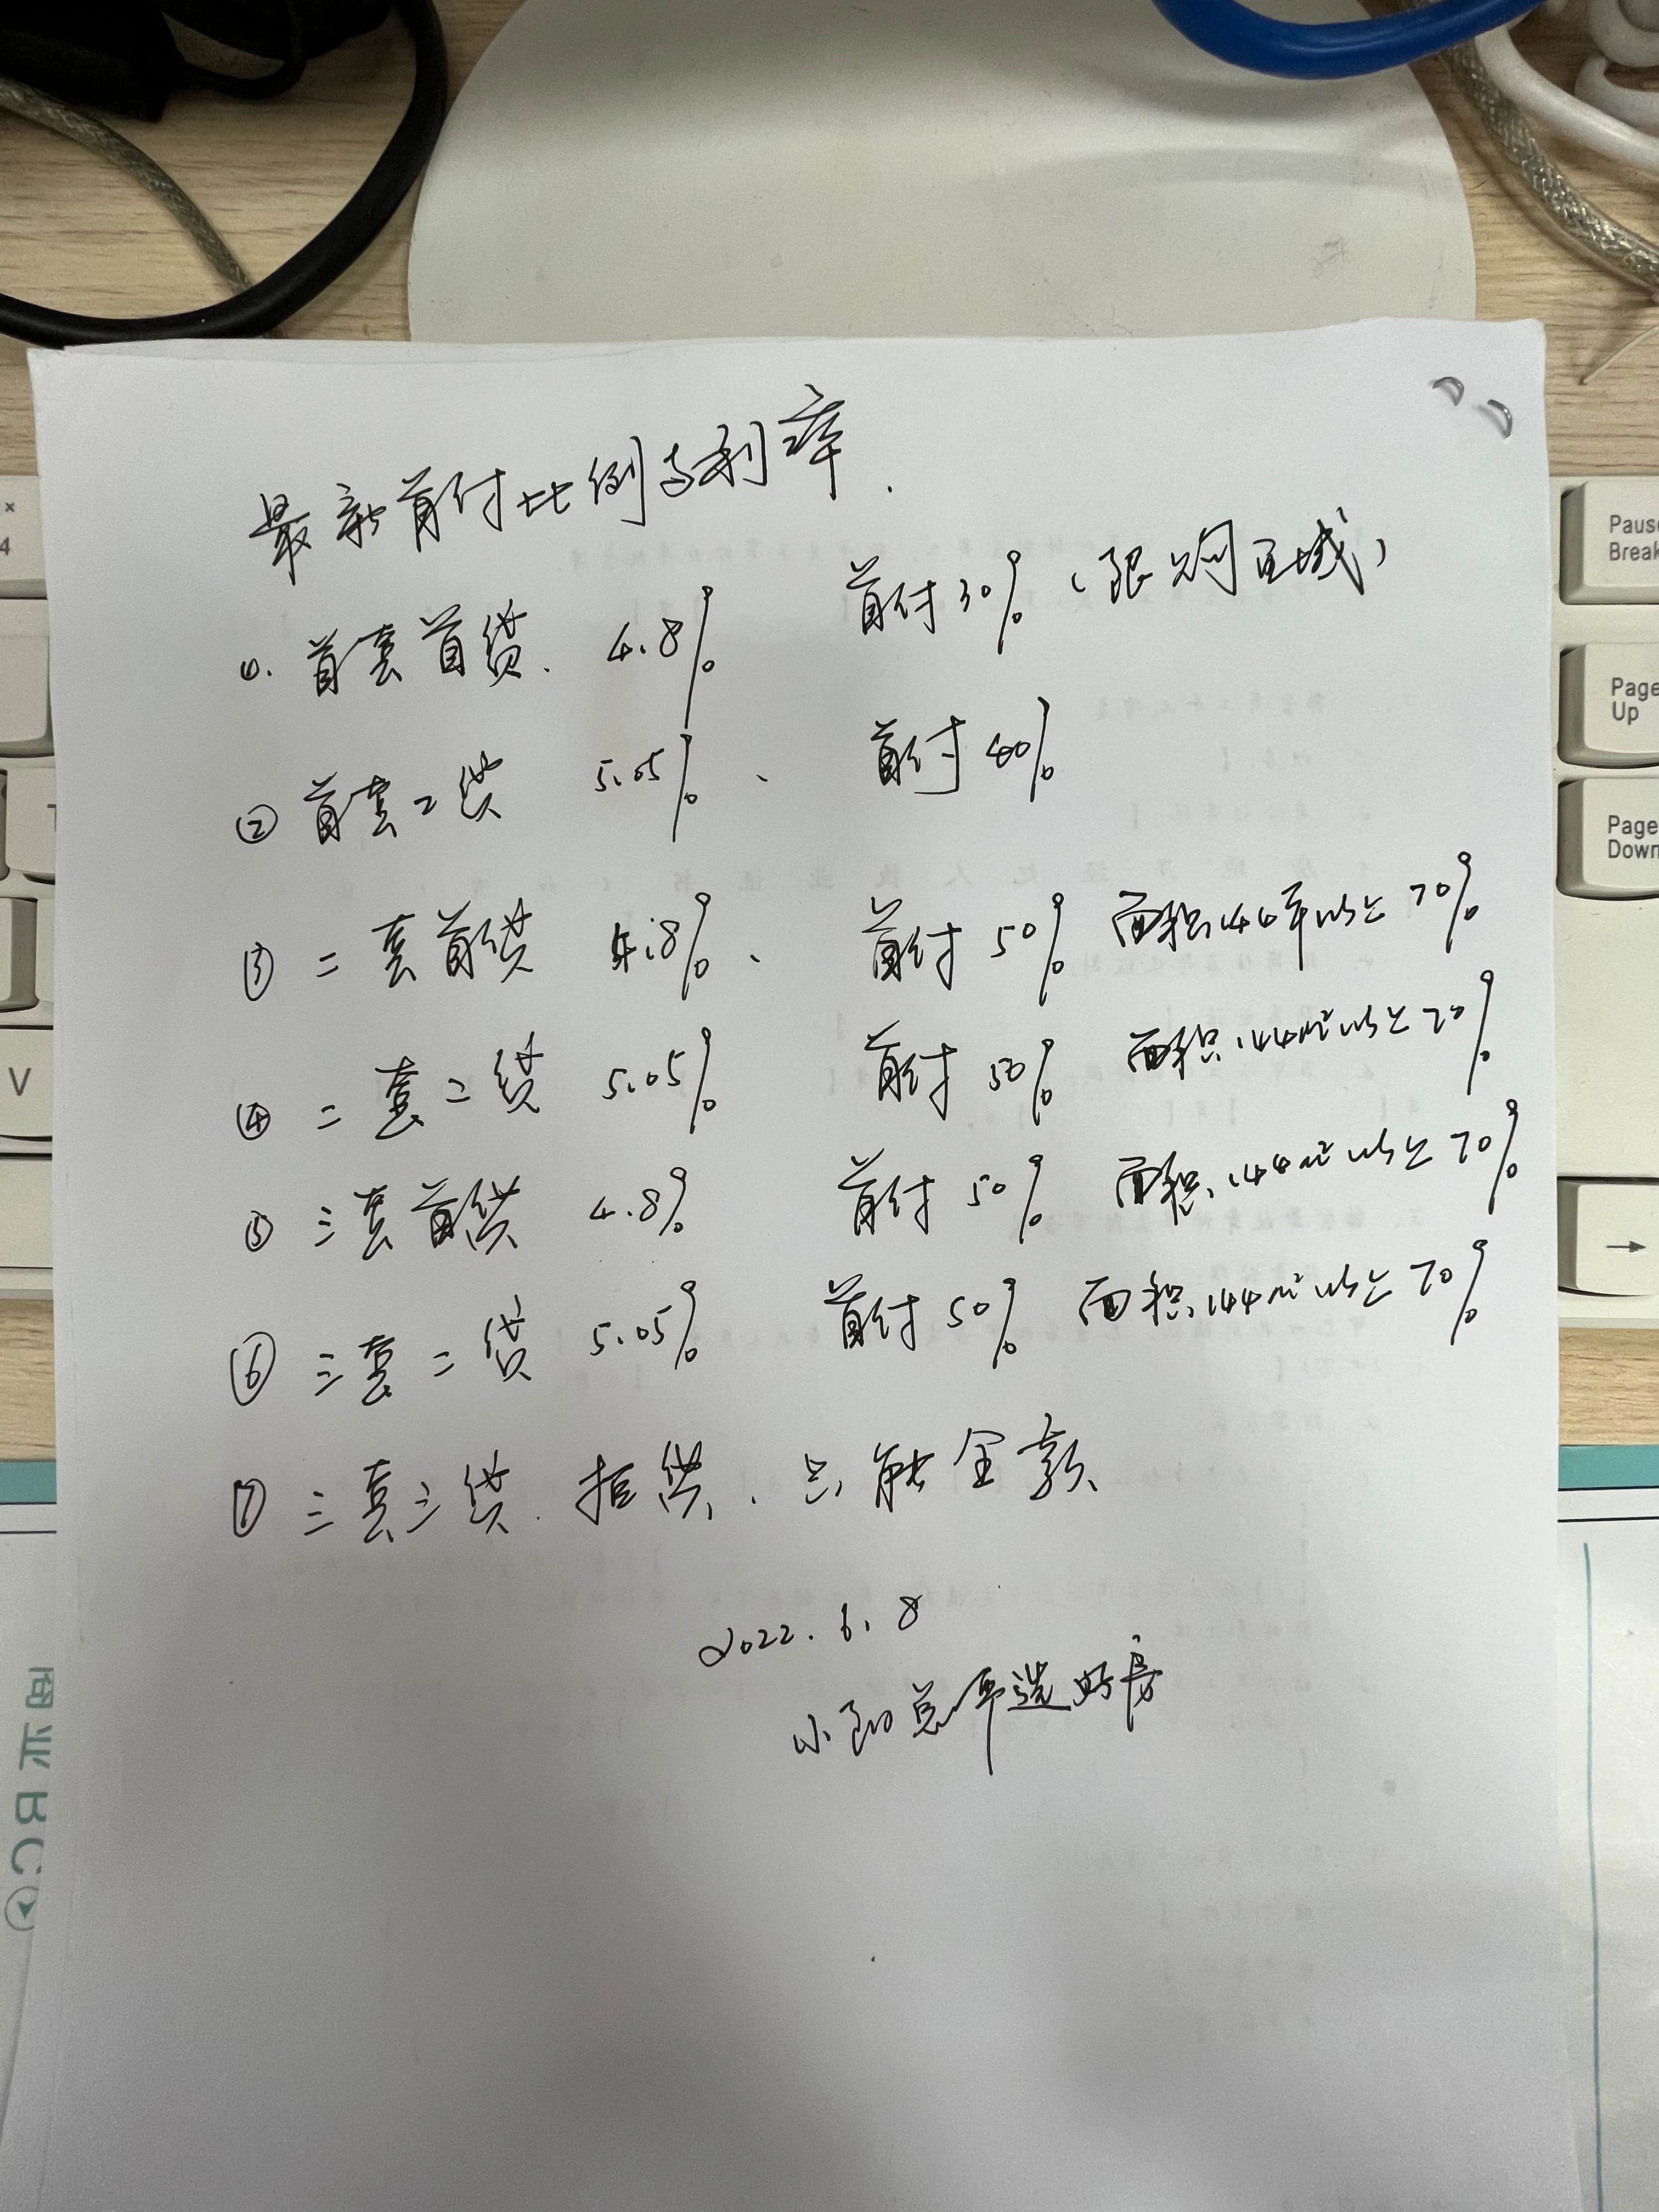 最新首付比例与利率.
①. 首套首贷. 4.8% 首付30%（限购区域）
② 首套二贷 5.05%、 首付40%
③ 二套首贷 4.8%、 首付50% 面积144平以上70%
④ 二套二贷 5.05% 首付50% 面积144m²以上70%
⑤ 三套首贷 4.8% 首付50% 面积144m²以上70%
⑥ 三套二贷 5.05% 首付50% 面积144m²以上70%
⑦ 三套三贷. 拒贷. 只能全款
2022.6.8
选好房
Pause
Break
Page
Up
Page
Down
→
V
4